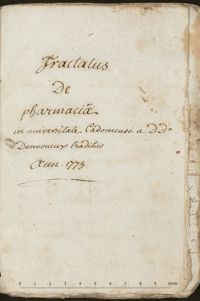 Tractatus
De
pharmaciâ
in universitate Cadomensi a DD°
Desmoueux traditus
Ann. 1775
0 1 2 3 4 5 6 7 8 9 10cm